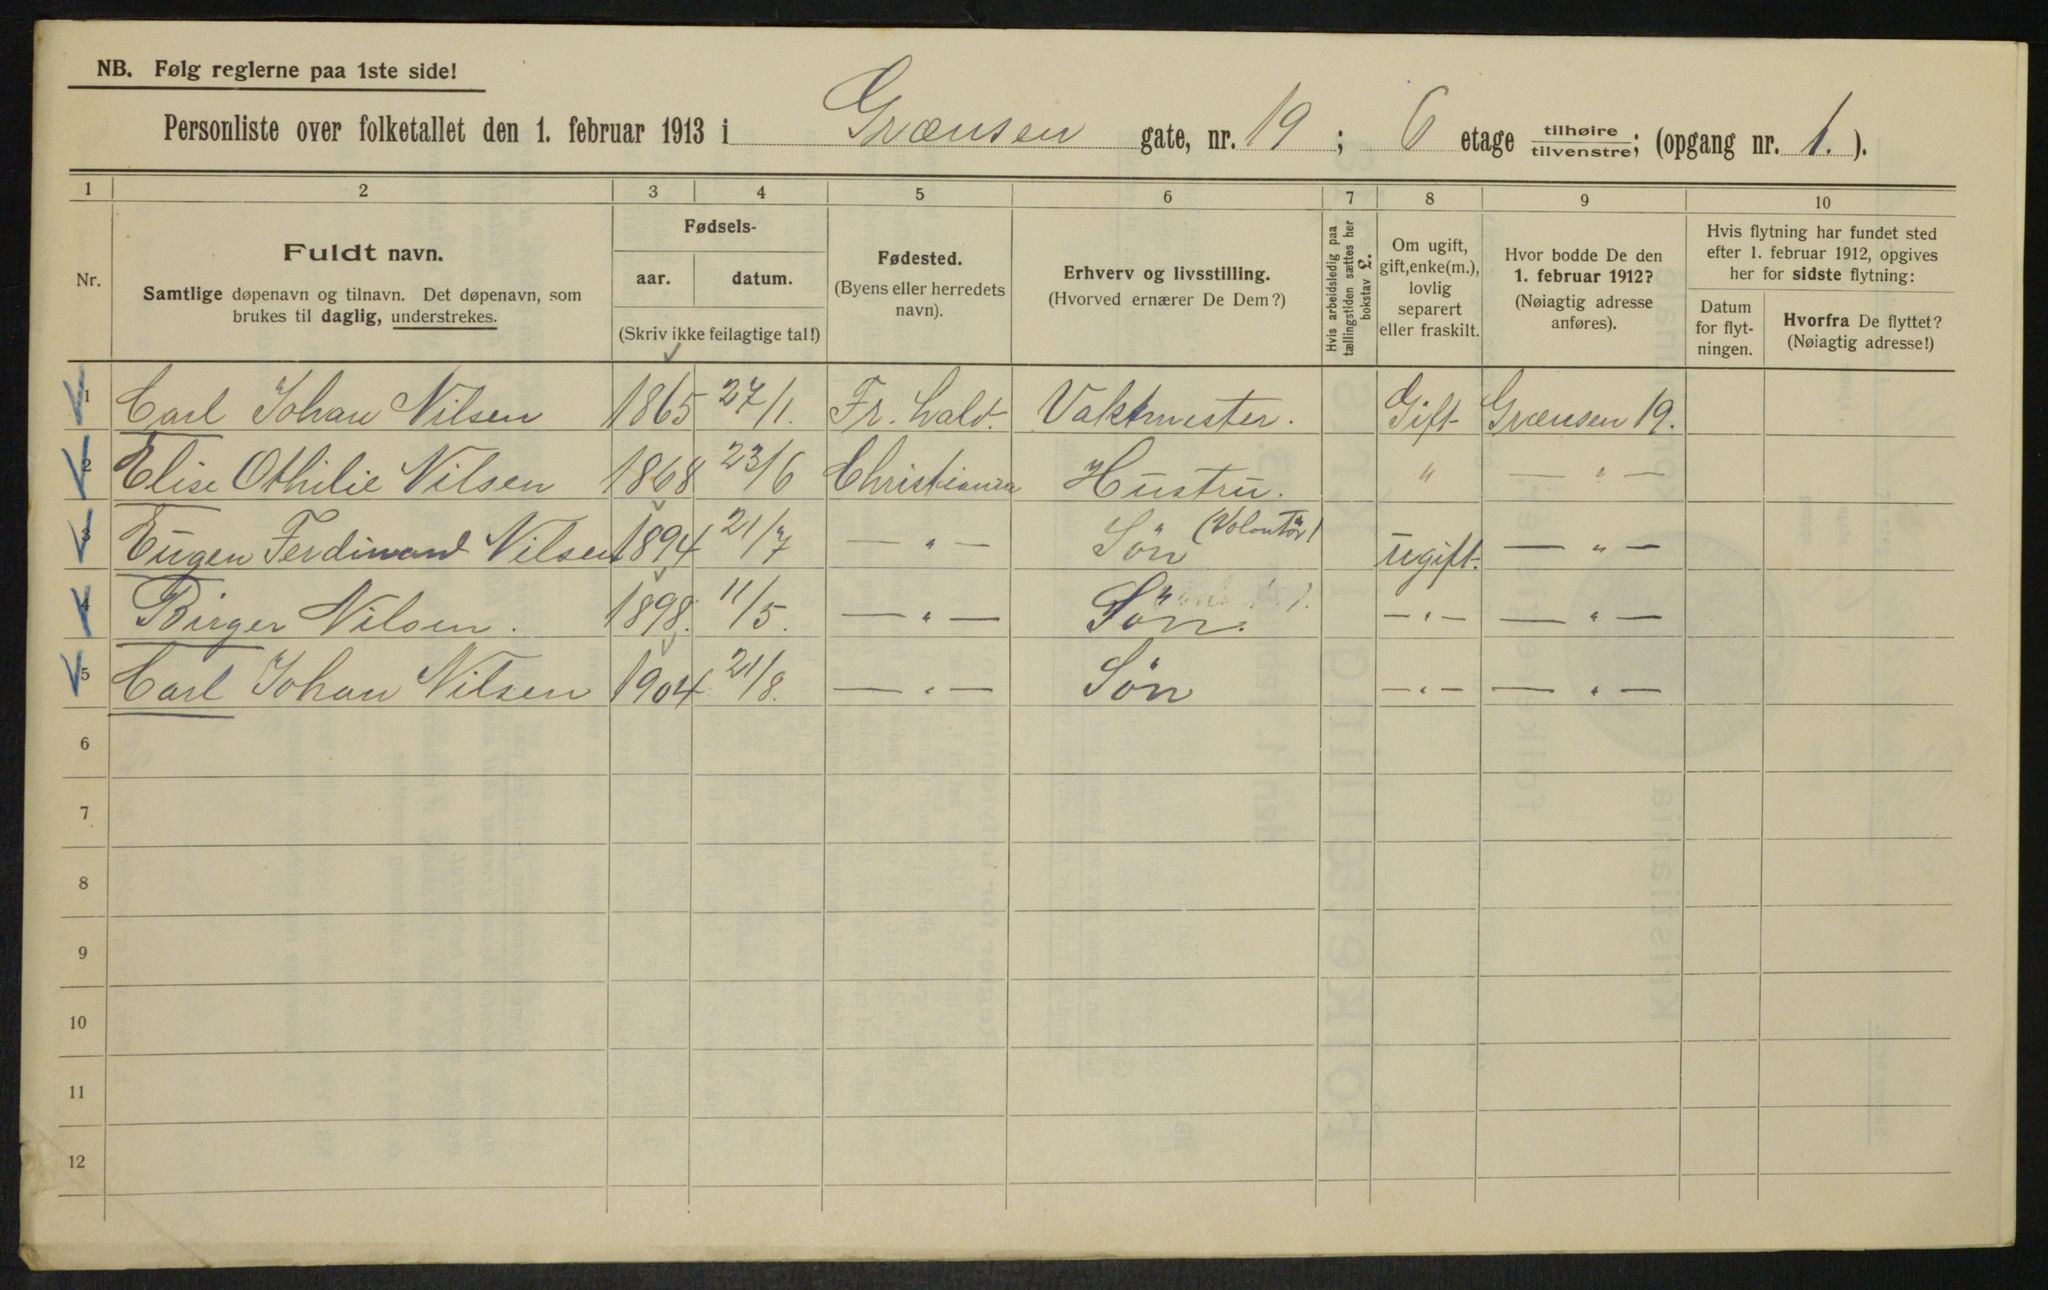 NB. Følg reglerne paa 1ste side!
Personliste over folketallet den 1. februar 1913 i Grænsen gate, nr. 19 ; 6 etage tilhøire tilvenstre; (opgang nr. 1. ).
1 2 3 4 5 6 7 8 9 10
Nr.
Fuldt navn.
Samtlige døpenavn og tilnavn. Det døpenavn, som
brukes til daglig, understrekes.
Fødsels-
aar. datum.
(Skriv ikke feilagtige tal!)
Fødested.
(Byens eller herredets
navn).
Erhverv og livsstilling.
(Hvorved ernærer De Dem?)
Hvis arbeidsledig paa
tællingstiden sættes her
bokstav L.
Om ugift,
gift, enke(m.),
lovlig
separert
eller fraskilt.
Hvor bodde De den
1. februar 1912?
(Nøiagtig adresse
anføres).
Hvis flytning har fundet sted
efter 1. februar 1912, opgives
her for sidste flytning:
Datum
for flyt-
ningen.
Hvorfra De flyttet?
(Nøiagtig adresse!)
1 Carl Johan Nilsen 1865 27/1. Fr. hald. Vaktmester. Gift Grænsen 19.
2 Elise Othilie Nilsen 1868 23/6 Christiania Hustru. " — " —
3 Eugen Ferdinand Nilsen 1894 21/7 — " — Sön (Volontör) ugift. — " —
4 Birger Nilsen. 1898. 11/5. — " — Sön. — " — — " —
5 Carl Johan Nilsen 1904 21/8. — " — Sön — " — — " —
6
7
8
9
10
11
12